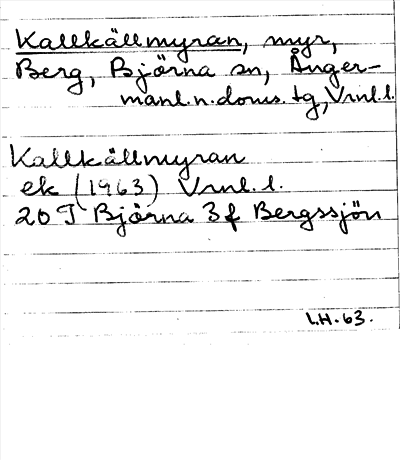 Kallkällmyran, myr,
Berg, Björna sn, Ånger-
manl. n. doms. tg, Vrnl. l.
Kallkällmyran
ek (1963) Vrnl. l.
20 J Björna 3f Bergssjön
L.H. 63.